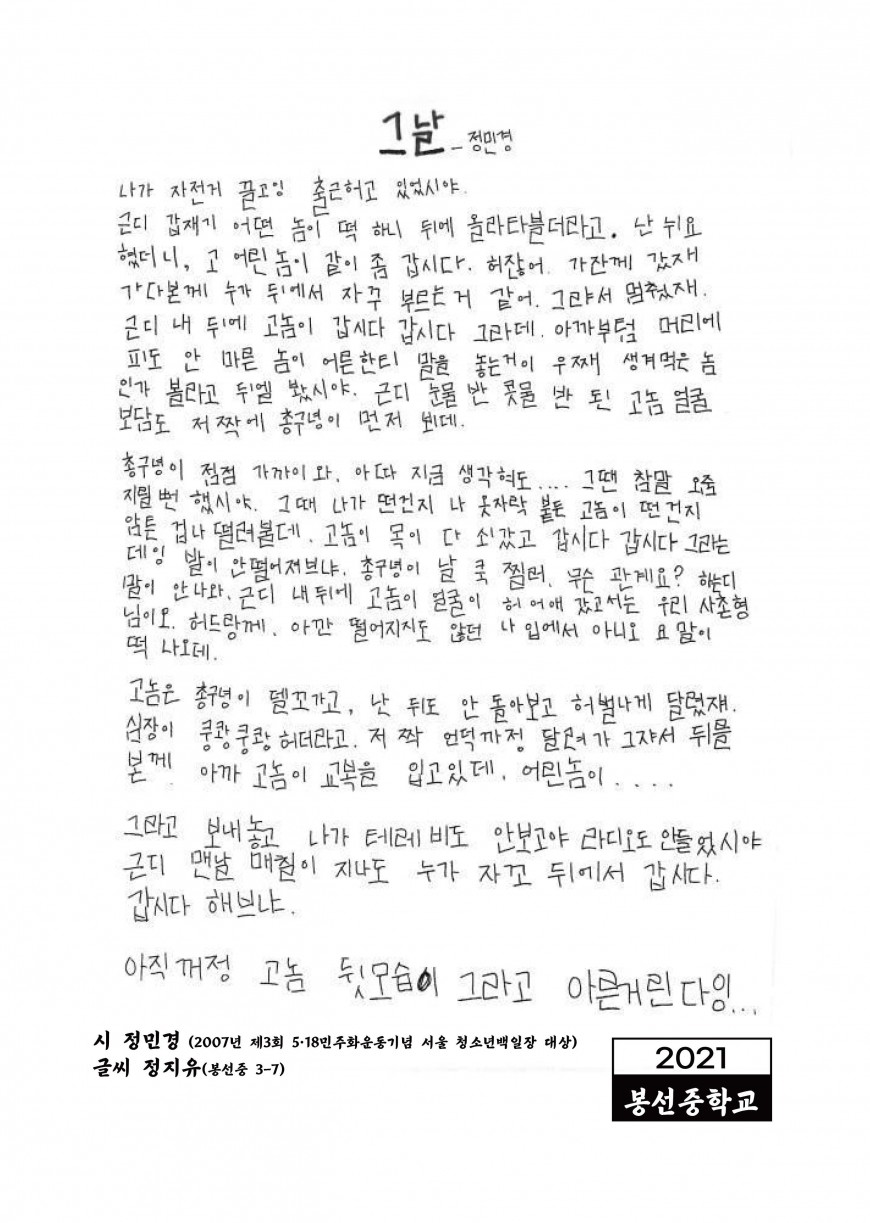 그날 - 정민경
나가 자전거 끌고잉 출근허고 있었시야.
근디 갑재기 어떤 놈이 떡 하니 뒤에 올라타블더라고. 난 뉘요
혔더니, 고 어린놈이 같이 좀 갑시다. 허잖어. 가잔께 갔재
가다본께 누가 뒤에서 자꾸 부르는거 같어. 그랴서 멈췄재.
근디 내 뒤에 고놈이 갑시다 갑시다 그라데. 아까부텀 머리에
피도 안 마른 놈이 어른한티 말을 놓는거이 우째 생겨먹은 놈
인가 볼라고 뒤엘 봤시야. 근디 눈물 반 콧물 반 된 고놈 얼굴
보담도 저 짝에 총구녕이 먼저 뵈데.
총구녕이 점점 가까이와. 아따 지금 생각혀도.... 그땐 참말 오줌
지릴 뻔 했시야. 그때 나가 떤건지 나 옷자락 붙든 고놈이 떤건지
암튼 겁나 떨려붐데. 고놈이 목이 다 쇠갔고 갑시다 갑시다 그라는
데잉 발이 안떨어져브냐. 총구녕이 날 쿡 찔러. 무슨 관계요? 하는디
말이 안나와. 근디 내뒤에 고놈이 얼굴이 허어애 갔고서는 우리 사촌형
님이오. 허드랑께. 아깐 떨어지지도 않던 나 입에서 아니오 요 말이
떡 나오데.
고놈은 총구녕이 델꼬가고, 난 뒤도 안 돌아보고 허벌나게 달렸쟤.
심장이 쿵쾅쿵쾅 허더라고. 저 짝 언덕까정 달려가 그쟈서 뒤를
본께 아까 고놈이 교복을 입고있데. 어린놈이....
그라고 보내놓고 나가 테레비도 안보고야 라디오도 안들었시야
근디 맨날 매칠이 지나도 누가 자꼬 뒤에서 갑시다.
갑시다 해브냐.
아직꺼정 고놈 뒷모습이 그라고 아른거린다잉...
시 정민경 (2007년 제3회 5·18민주화운동기념 서울 청소년백일장 대상)
글씨 정지유(봉선중 3-7)
2021
봉선중학교